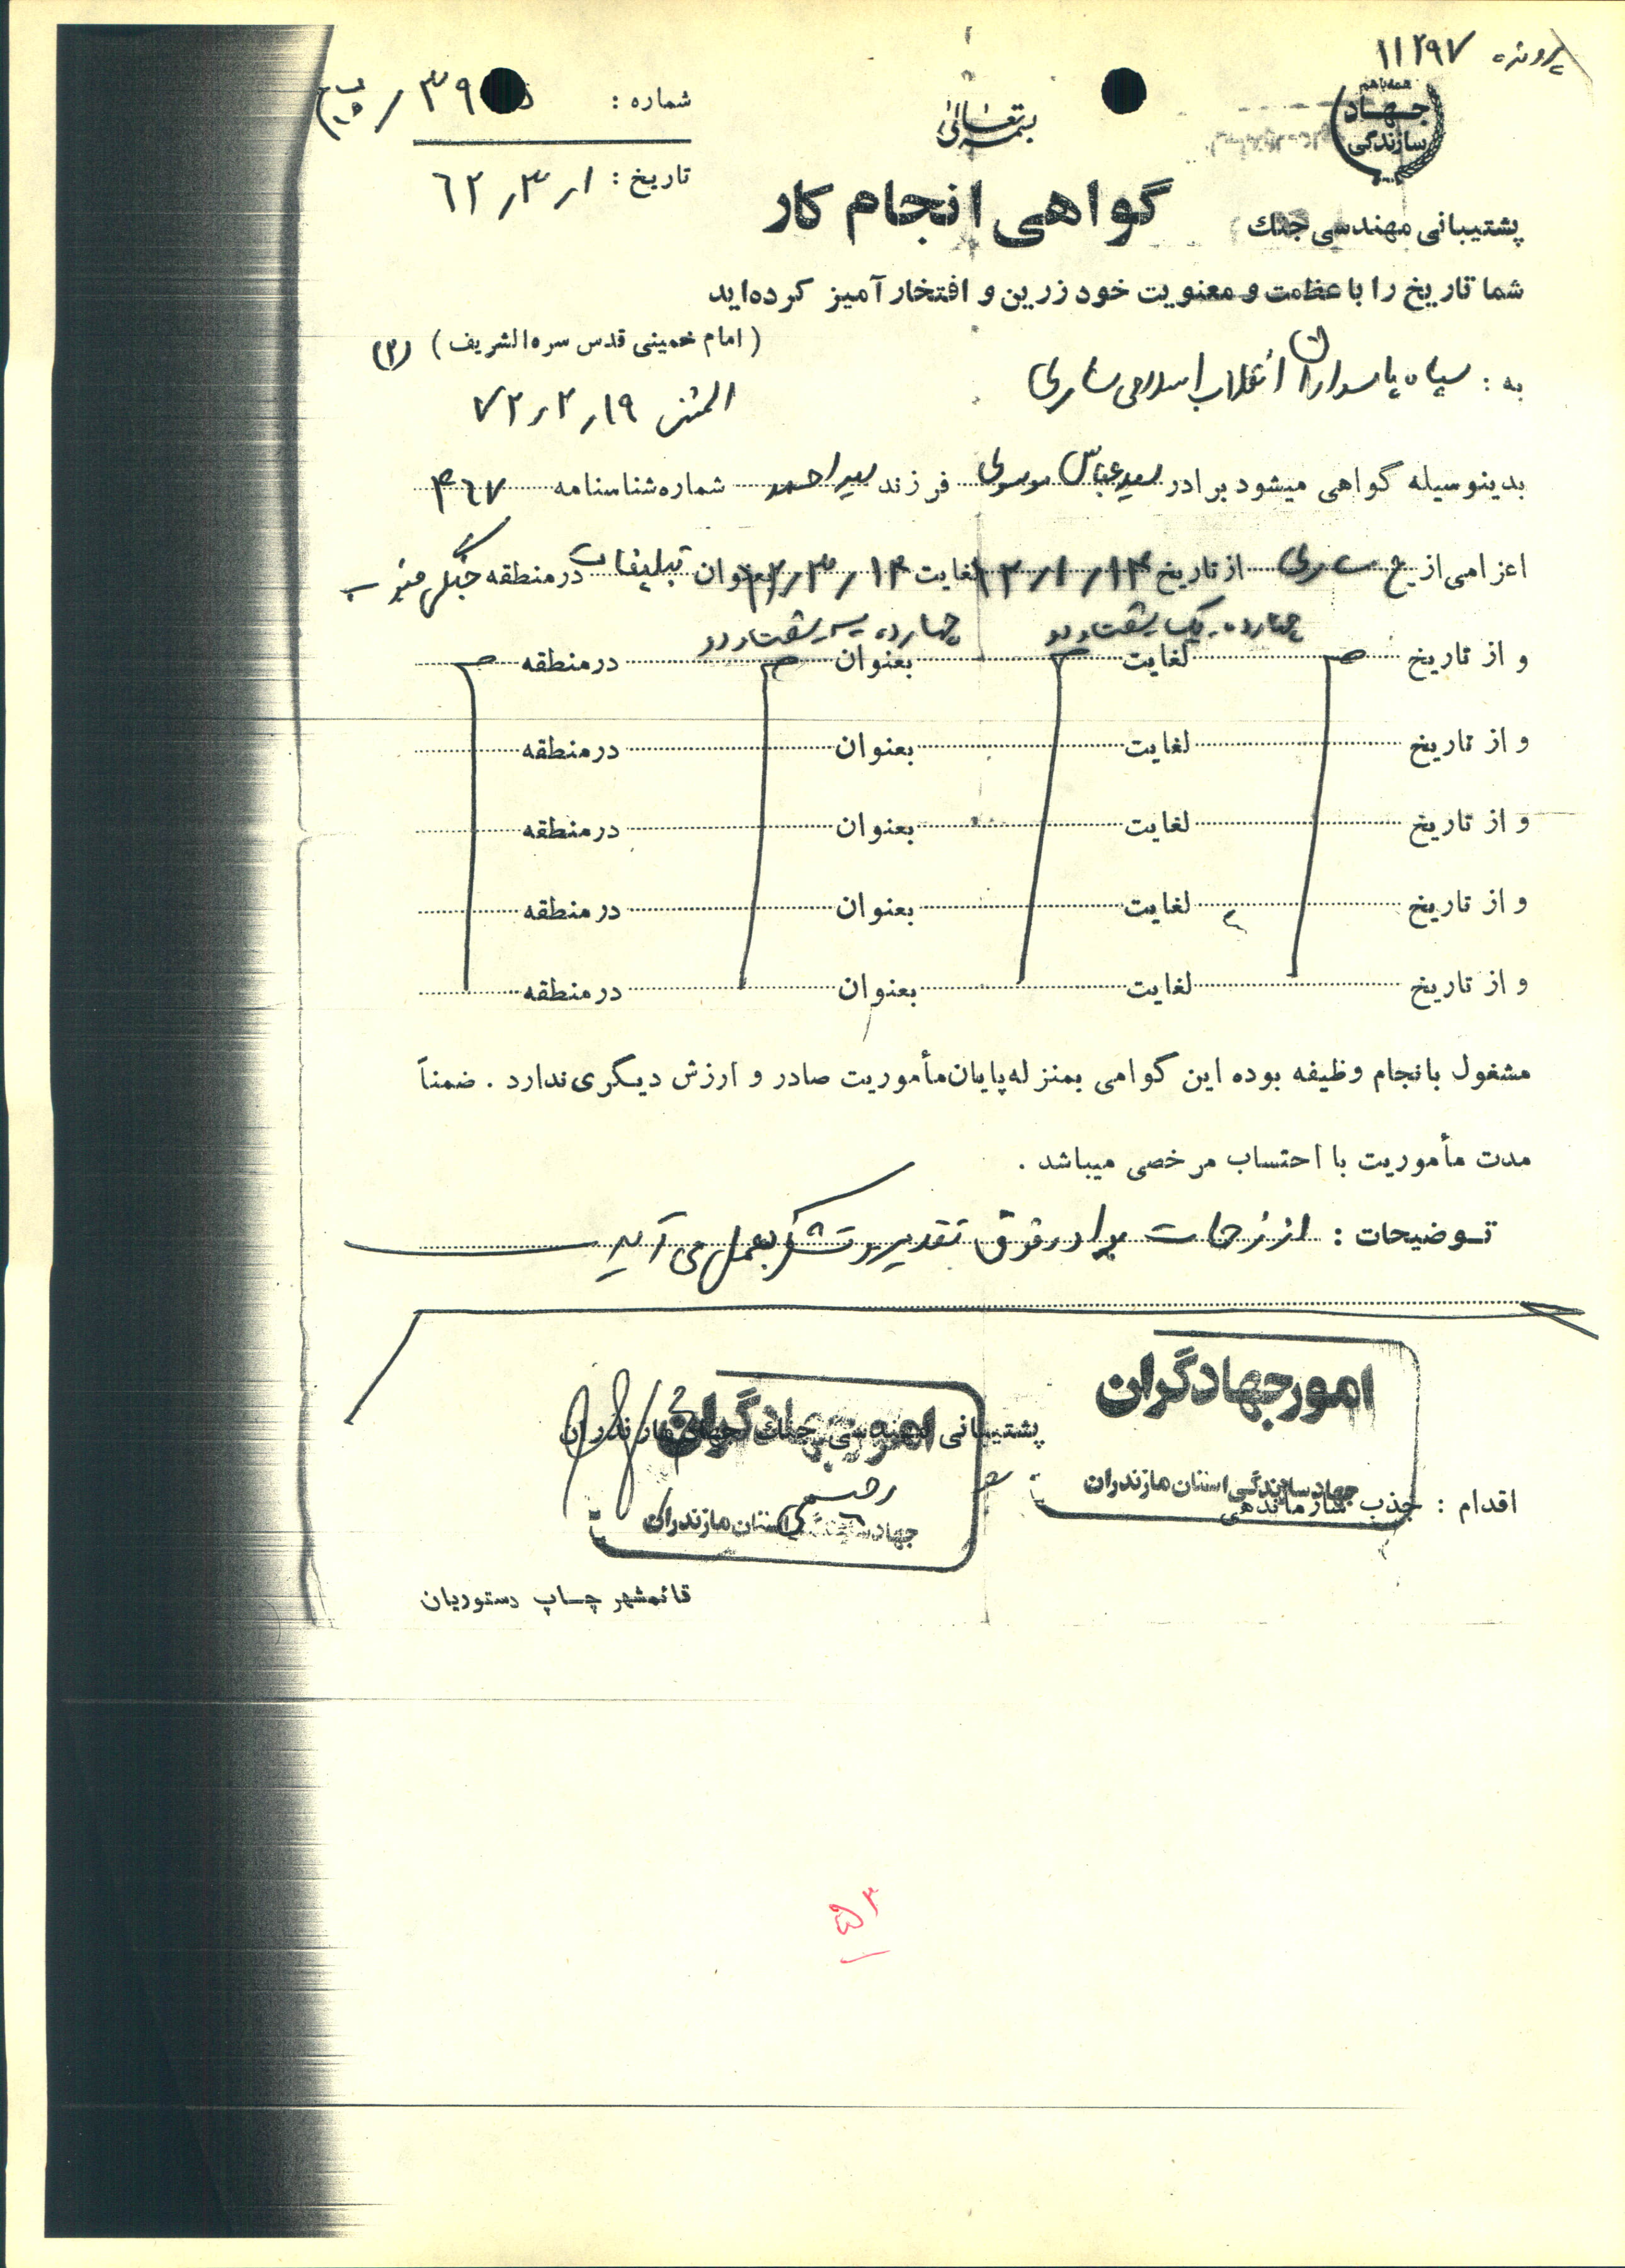 پرونده ۱۱۲۹۷
همه با هم
جهاد
سازندگی
بسمه تعالی
شماره : ۳۹
تاریخ : ۶۲٫۳٫۱
پشتیبانی مهندسی جنگ
گواهی انجام کار
شما تاریخ را با عظمت و معنویت خود زرین و افتخار آمیز کرده‌اید
(امام خمینی قدس سره الشریف) (۲)
به : سپاه پاسداران انقلاب اسلامی ساری
المثنی ۷۲٫۲٫۱۹
بدینوسیله گواهی میشود برادر سید عباس موسوی فرزند سید احمد شماره شناسنامه ۴۶۷
اعزامی از ج ساری از تاریخ ۶۲٫۱٫۱۴ لغایت ۶۲٫۳٫۱۴ بعنوان تبلیغات در منطقه جنگی جنوب
چهارده یک شصت و دو چهارده سه شصت و دو
و از تاریخ لغایت بعنوان در منطقه
و از تاریخ لغایت بعنوان در منطقه
و از تاریخ لغایت بعنوان در منطقه
و از تاریخ لغایت بعنوان در منطقه
و از تاریخ لغایت بعنوان در منطقه
مشغول بانجام وظیفه بوده این گواهی بمنزله پایان مأموریت صادر و ارزش دیگری ندارد . ضمناً
مدت مأموریت با احتساب مرخصی میباشد .
توضیحات : از زحمات برادر فوق تقدیر و تشکر بعمل می آید
امور جهادگران
جهاد سازندگی استان مازندران
پشتیبانی مهندسی جنگ جهاد مازندران
امور جهادگران
رحیمی
جهاد سازندگی استان مازندران
اقدام : جذب سازماندهی
قائمشهر چاپ دستوریان